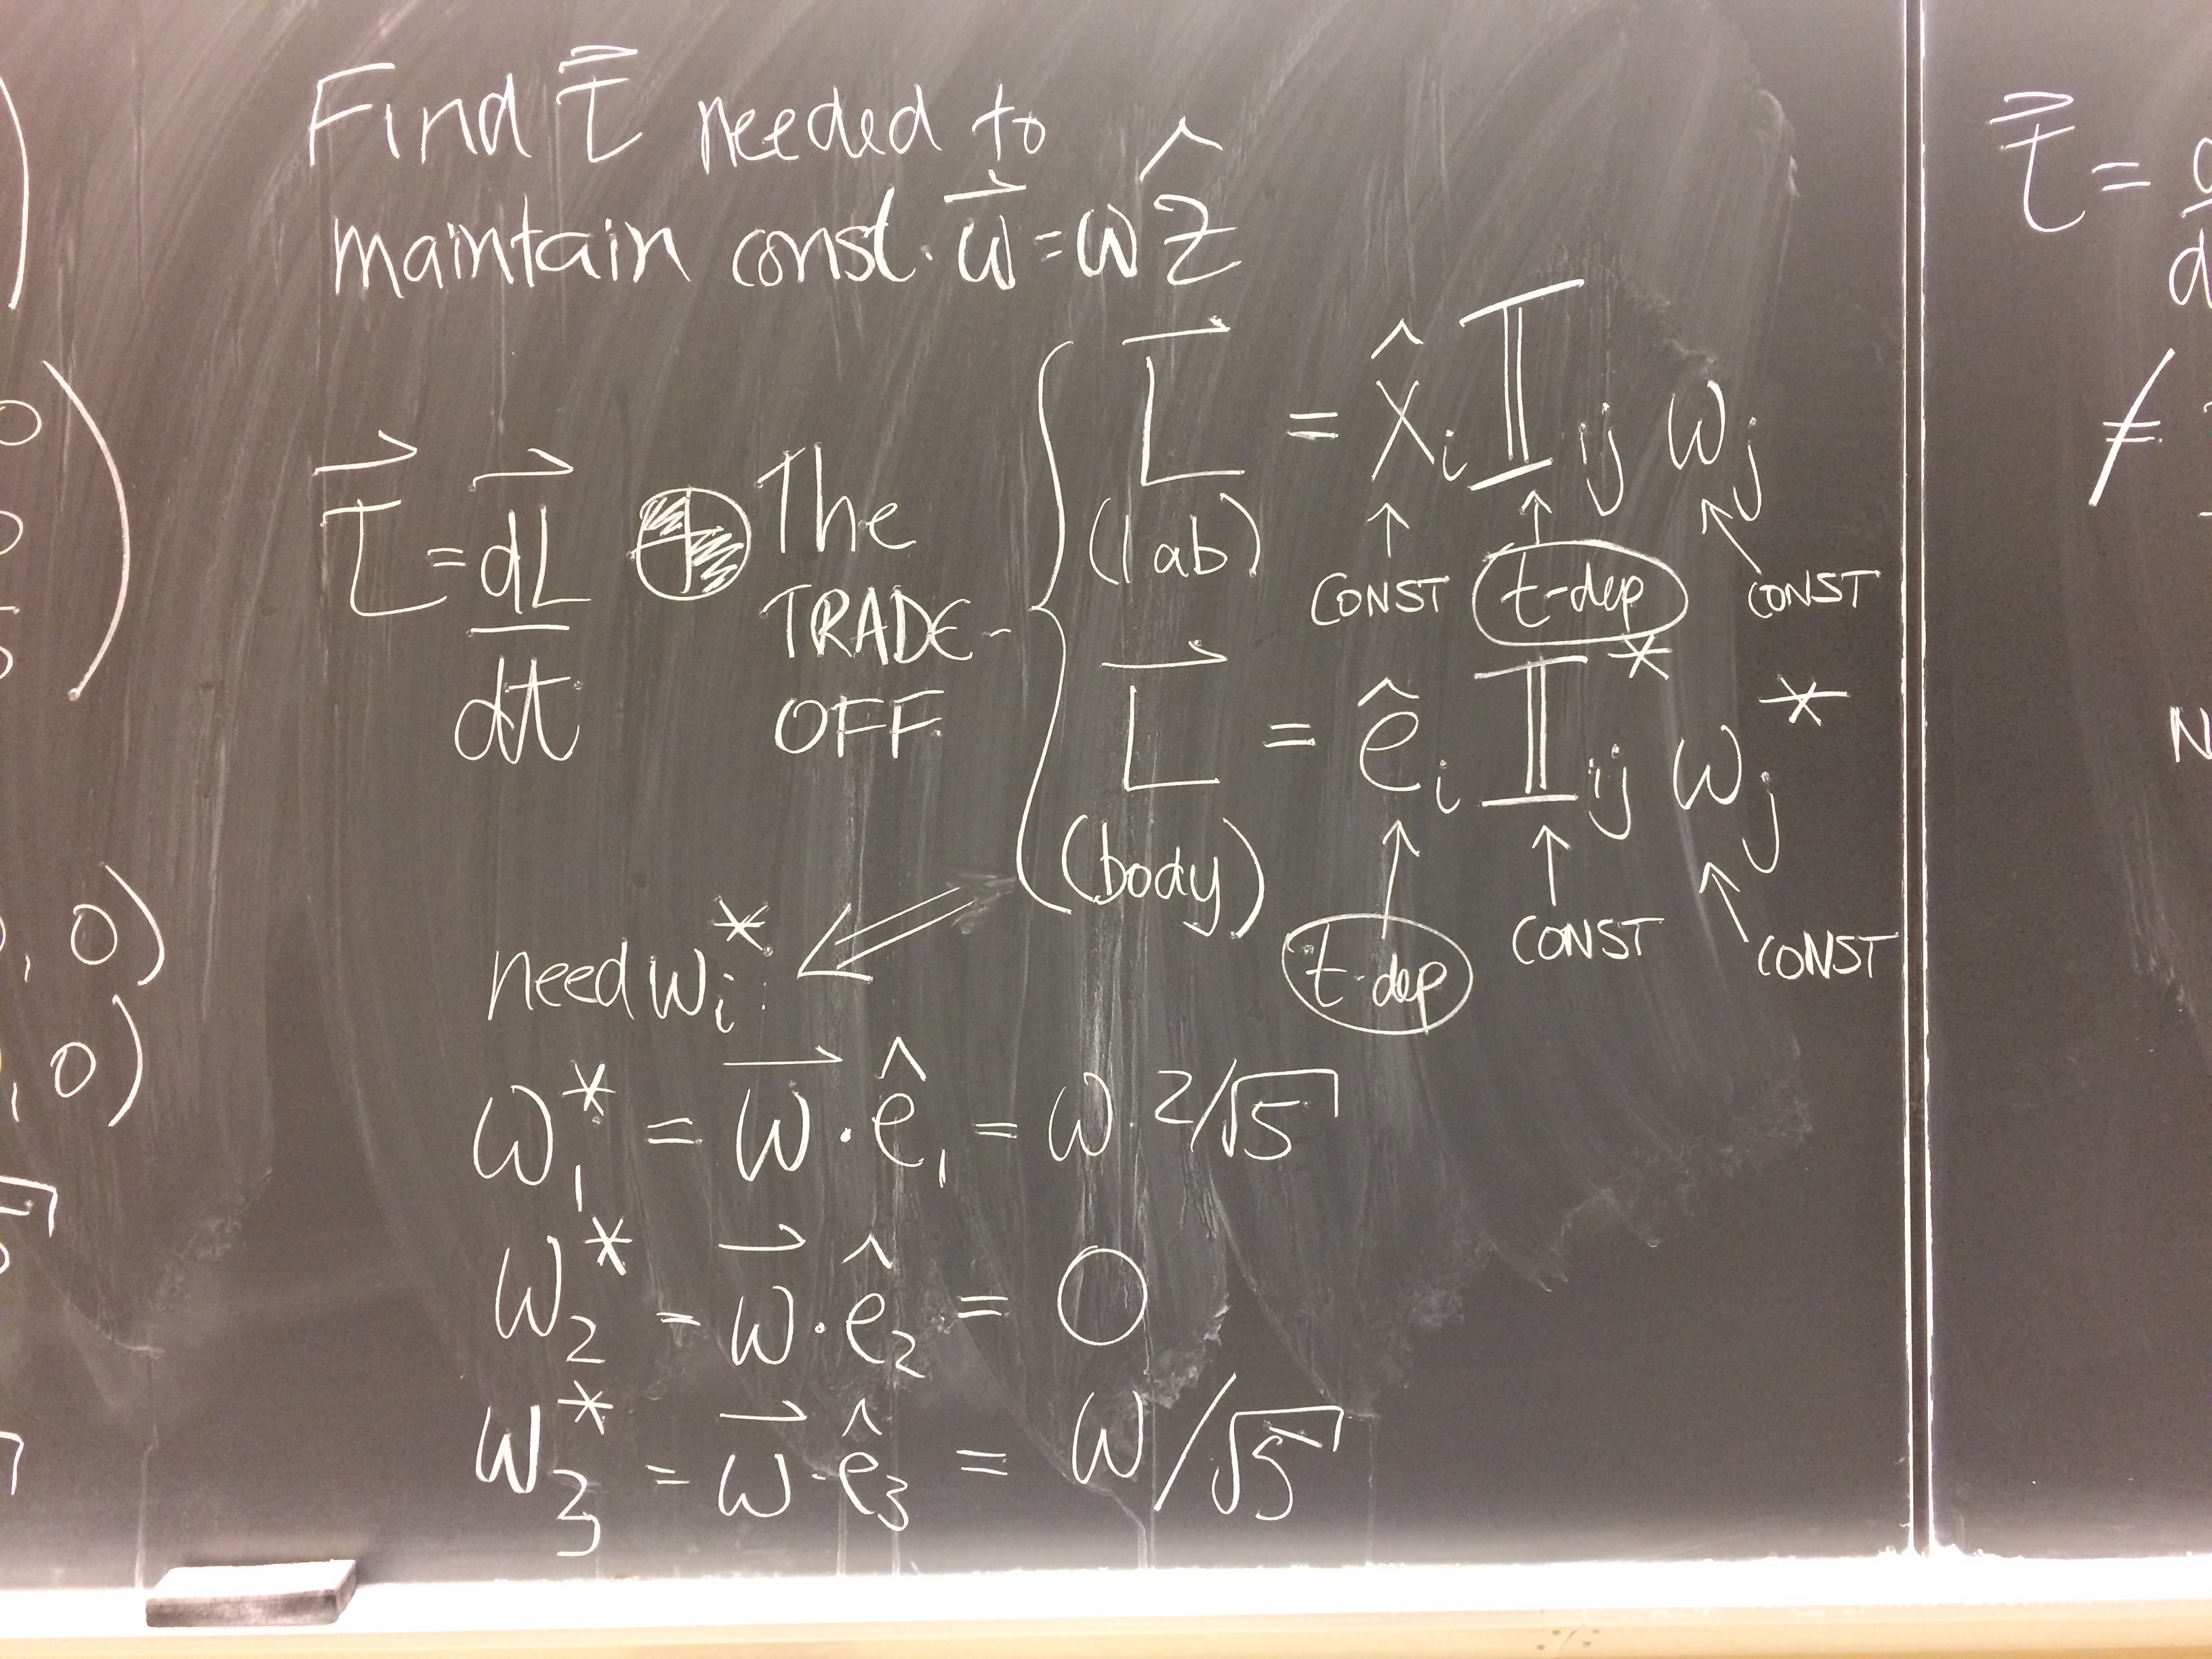 Find τ⃗ needed to
maintain const. ω⃗ = ω ẑ
τ⃗ = dL⃗/dt
The
TRADE-
OFF
L⃗ = x̂ᵢ 𝕀ᵢⱼ ωⱼ
(lab)
↑ CONST ↑ t-dep ↖ CONST
L⃗ = êᵢ 𝕀ᵢⱼ* ωⱼ*
(body)
↑ t-dep ↑ CONST ↖ CONST
need ωᵢ* :
ω₁* = ω⃗ · ê₁ = ω 2/√5
ω₂* = ω⃗ · ê₂ = 0
ω₃* = ω⃗ · ê₃ = ω/√5
0
, 0)
, 0)
τ⃗ =
≠
N